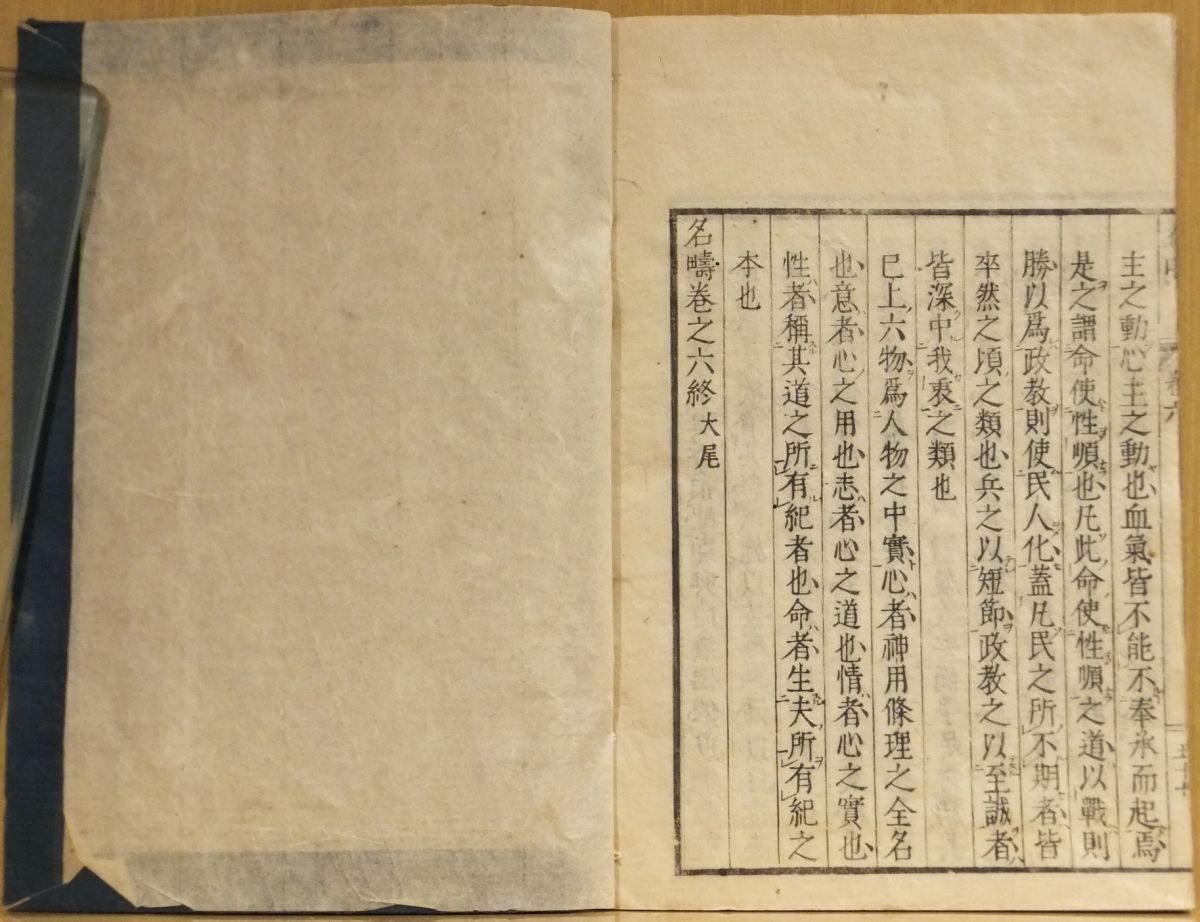 主之動心主之動也血氣皆不能不奉承而起焉
是之謂命使性順也凡此命使性順之道以戰則
勝以爲政教則使民人化蓋凡民之所不期者皆
卒然之頃之類也兵之以短節政教之以至誠者
皆深中我衷之類也
已上六物爲人物之中實心者神用條理之全名
也意者心之用也志者心之道也情者心之實也
性者稱其道之所有紀者也命者生夫所有紀之
本也
名疇卷之六終 大尾